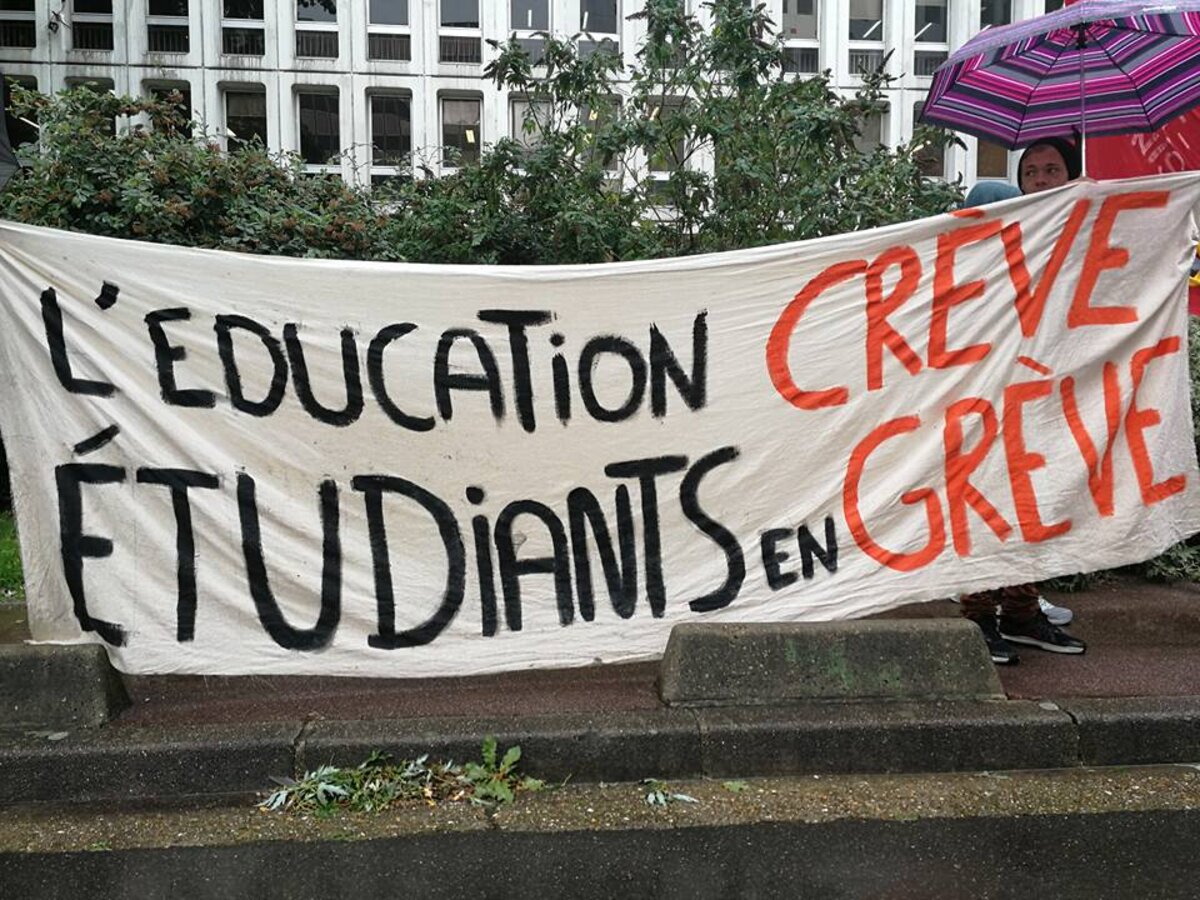 L'EDUCATION CRÈVE
ÉTUDIANTS EN GRÈVE